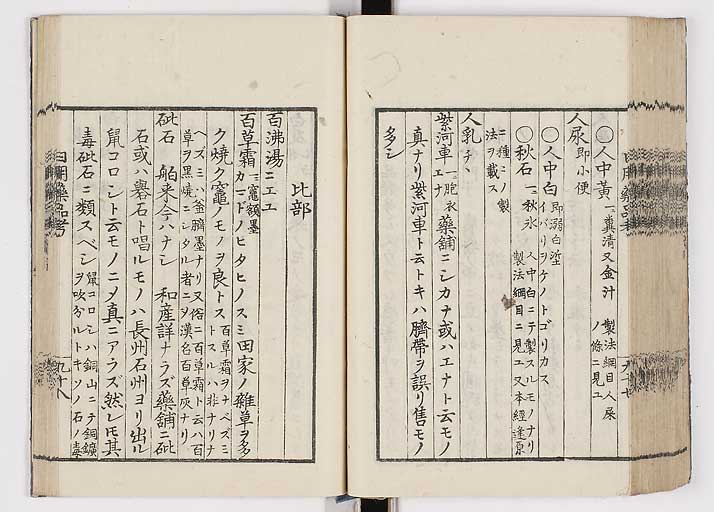 ◯人中黄 一糞清又金汁 製法綱目人屎
ノ條ニ見ユ
人尿 即小便
◯人中白 即溺白垽
イバリヲケノトゴリカス
◯秋石 一秋氷 人中白ニテ製スルモノナリ
製法綱目ニ見ユ又本經逢原
ニ種ミノ製
法ヲ載ス
人乳 チヽ
紫河車 一胞衣
エナ 藥舗ニシカナ或ハエナト云モノ
真ナリ紫河車ト云トキハ臍帶ヲ誤リ售モノ
多シ
比部
百沸湯 ニエユ
百草霜 一竈額墨
カマドノヒタヒノスミ 田家ノ雜草ヲ多
ク燒ク竈ノモノヲ良トス 百草霜ヲナベズミ
トスルハ非ナリナ
ベズミハ釜臍墨ナリ又俗ニ百草霜ト云ハ百
草ヲ黒燒ニシタル者ニヲ漢名百草灰ナリ
砒石 舶来今ハナシ 和産詳ナラズ藥舗ニ砒
石或ハ礜石ト唱ルモノハ長州石州ヨリ出ル
鼠コロシト云モノニメ真ニアラズ然レ𪜈其
毒砒石ニ類スベシ 鼠コロシハ銅山ニテ銅鑛
ヲ吹分ルトキソノ石ノ毒
日用藥品考
九十八